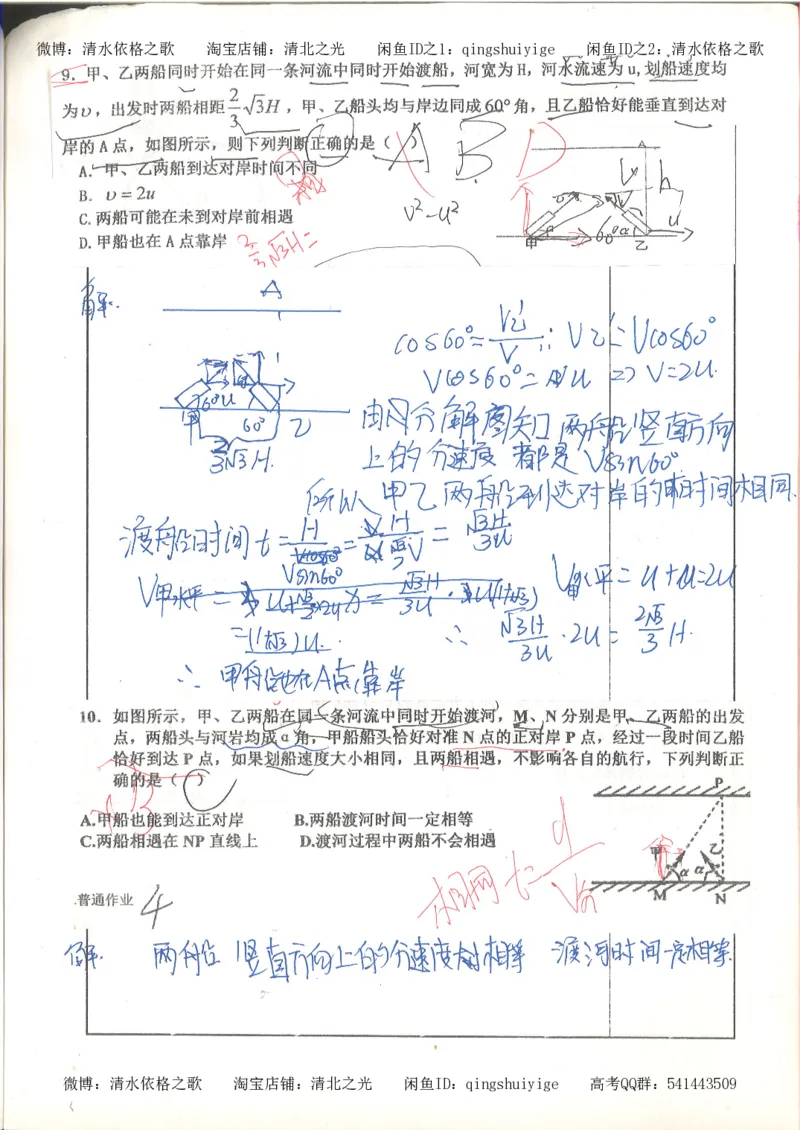 微博：清水依格之歌 淘宝店铺：清北之光 闲鱼ID之1：qingshuiyige 闲鱼ID之2：清水依格之歌
9．甲、乙两船同时开始在同一条河流中同时开始渡船，河宽为H，河水流速为u,划船速度均
为υ，出发时两船相距 2/3 √3H，甲、乙船头均与岸边同成60°角，且乙船恰好能垂直到达对
岸的A点，如图所示，则下列判断正确的是（ ）
A B D
A．甲、乙两船到达对岸时间不同
B．υ=2u
C.两船可能在未到对岸前相遇
D.甲船也在A点靠岸
V²-u²
2/3 √3H=
A
h
V
u
60° α
甲 乙
解.
A
cos60°=V乙/V ∴ V乙=Vcos60°
Vcos60°=u => V=2u.
60° u
60°
甲 乙
2/3 √3H.
由分解图知 两船竖直方向
上的分速度 都是Vsin60°
所以 甲乙两船到达对岸的时间相同.
渡船时间 t=H/Vsin60°=H/(√3/2 V)=√3H/3u
V甲水平=u+u=2u
=(1+√3)u.
∴ √3H/3u·2u=2√3/3 H.
∴ 甲船也在A点靠岸
10．如图所示，甲、乙两船在同一条河流中同时开始渡河，M、N分别是甲、乙两船的出发
点，两船头与河岩均成α角，甲船船头恰好对准N点的正对岸P点，经过一段时间乙船
恰好到达P点，如果划船速度大小相同，且两船相遇，不影响各自的航行，下列判断正
确的是（ ）
A.甲船也能到达正对岸 B.两船渡河时间一定相等
C.两船相遇在NP直线上 D.渡河过程中两船不会相遇
P
甲 乙
α α
M N
普通作业 4
相同 t=d/V
解. 两船 竖直方向上的分速度相等 渡河时间一定相等.
微博：清水依格之歌 淘宝店铺：清北之光 闲鱼ID：qingshuiyige 高考QQ群：541443509